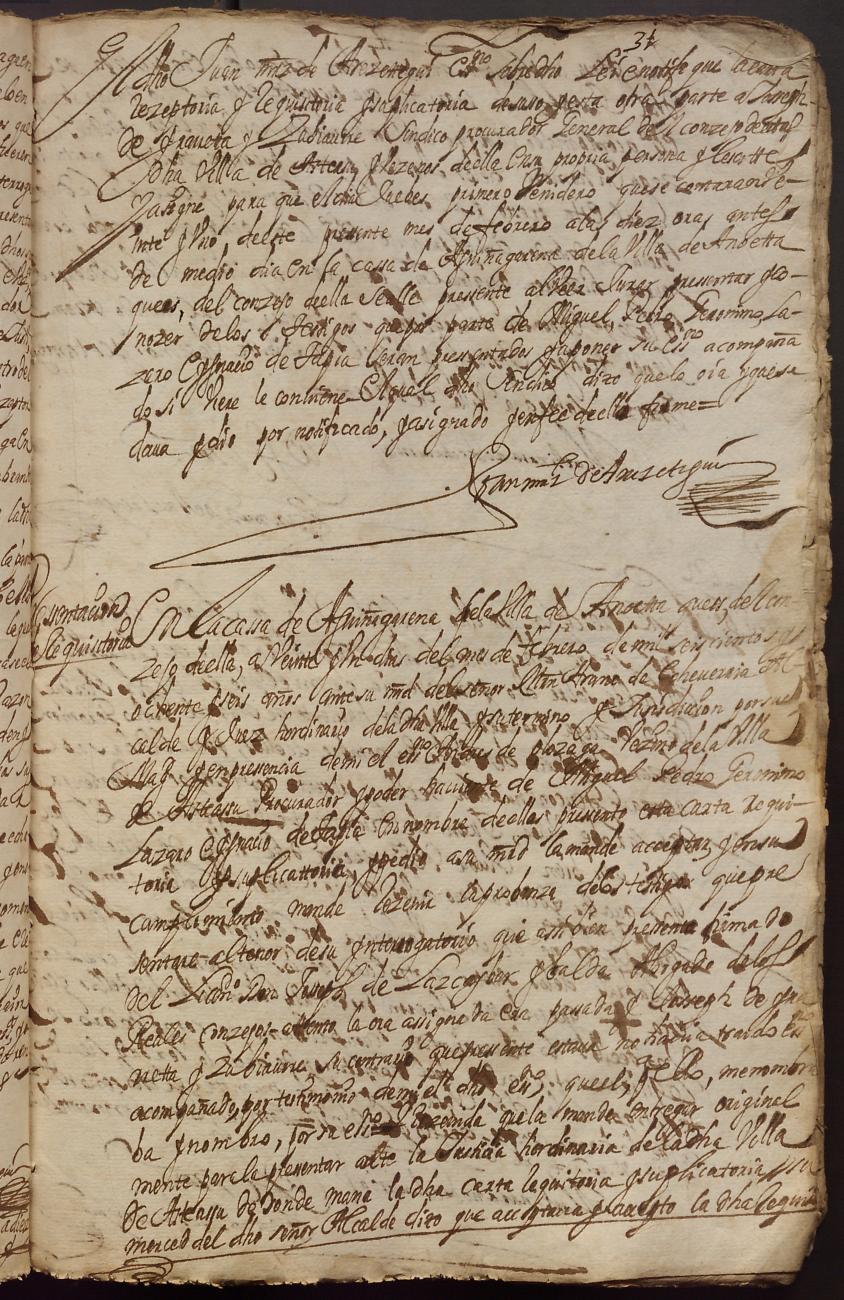 31
dho Juan mrz de Arezetegui Essno susodho Lei e notifique la carta
rezeptoria y requisitoria y suplicatoria de suso desta otra parte a Joseph
de Yraueta y Zubiaurre Sindico procurador General del conzejo
dha Villa de y Vezinos de ella En su propia persona y le
asigne para que el dia Juebes primero Venidero que se contaran Ve-
inte y Uno deste presente mes de febrero a las diez oras antes
de medio dia En la cassa de Apiñagarena de la Villa de Anoetta
que es, del conzejo de ella se alle pressente al Veer Jurar pressentar y co-
nozer de los testigos que por parte de Miguel, Pedro Geronimo, La-
zaro Eygnacio de Tapia seran pressentados y a poner su Essno acompaña
do si Viere le conviene El qual dho Sindico dixo que lo oia y que se
dava y dio por notificado, y asignado y en fee de ello firme=
Juan mrz de Arezetegui
sentacion de requisitoria
En la cassa de Apiñagarena de la Villa de Anoetta que es, del Con
zejo de ella, a Veinte y Un dias del mes de febrero de mil seiscientos y
ochenta y seis años ante su md del señor Martin de Echeverria Al
calde y Juez hordinario de la dha Villa y su termino y Jurisdicion por su
Magd y en presencia de mi el essno de plazaga Vezino de la Villa
de Asteassu Procurador y poder haviente de Miguel Pedro Geronimo
Lazaro Eygnacio de Tapia En nombre de ellos presento esta carta Requi-
toria y suplicattoria, y pedio a su md la mande acceptar, y en su
cumplimiento mande rezevir la probanza de los testigos que pre
sentare al tenor de su ynterrogatorio que assi bien pressenta firmado
del Licendo Don Joseph de Lazcaybar y balda Abogado de los
Reales conzejos atento la ora assignada era passada y Joseph de yra
ueta y Zubiaurre su contrario que pressente estava no havia traido Essno
acompañado, por testimonio de mi el dho essno, que el, y ello, me nombra
ba y nombro, por su essno y Pezenda que la mande entregar original
mente para la pressentar ante la Justicia hordinaria de la dha Villa
de Asteassu de donde mana la dha carta Requitoria y suplicatoria y su
merced del dho señor Alcalde dixo que acceptava y accepto la dha Requi